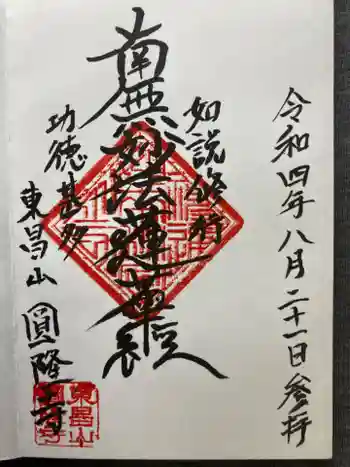 令和四年八月二十一日参拝
如説修行
南無妙法蓮華経
功徳甚多
東昌山 圓隆寺